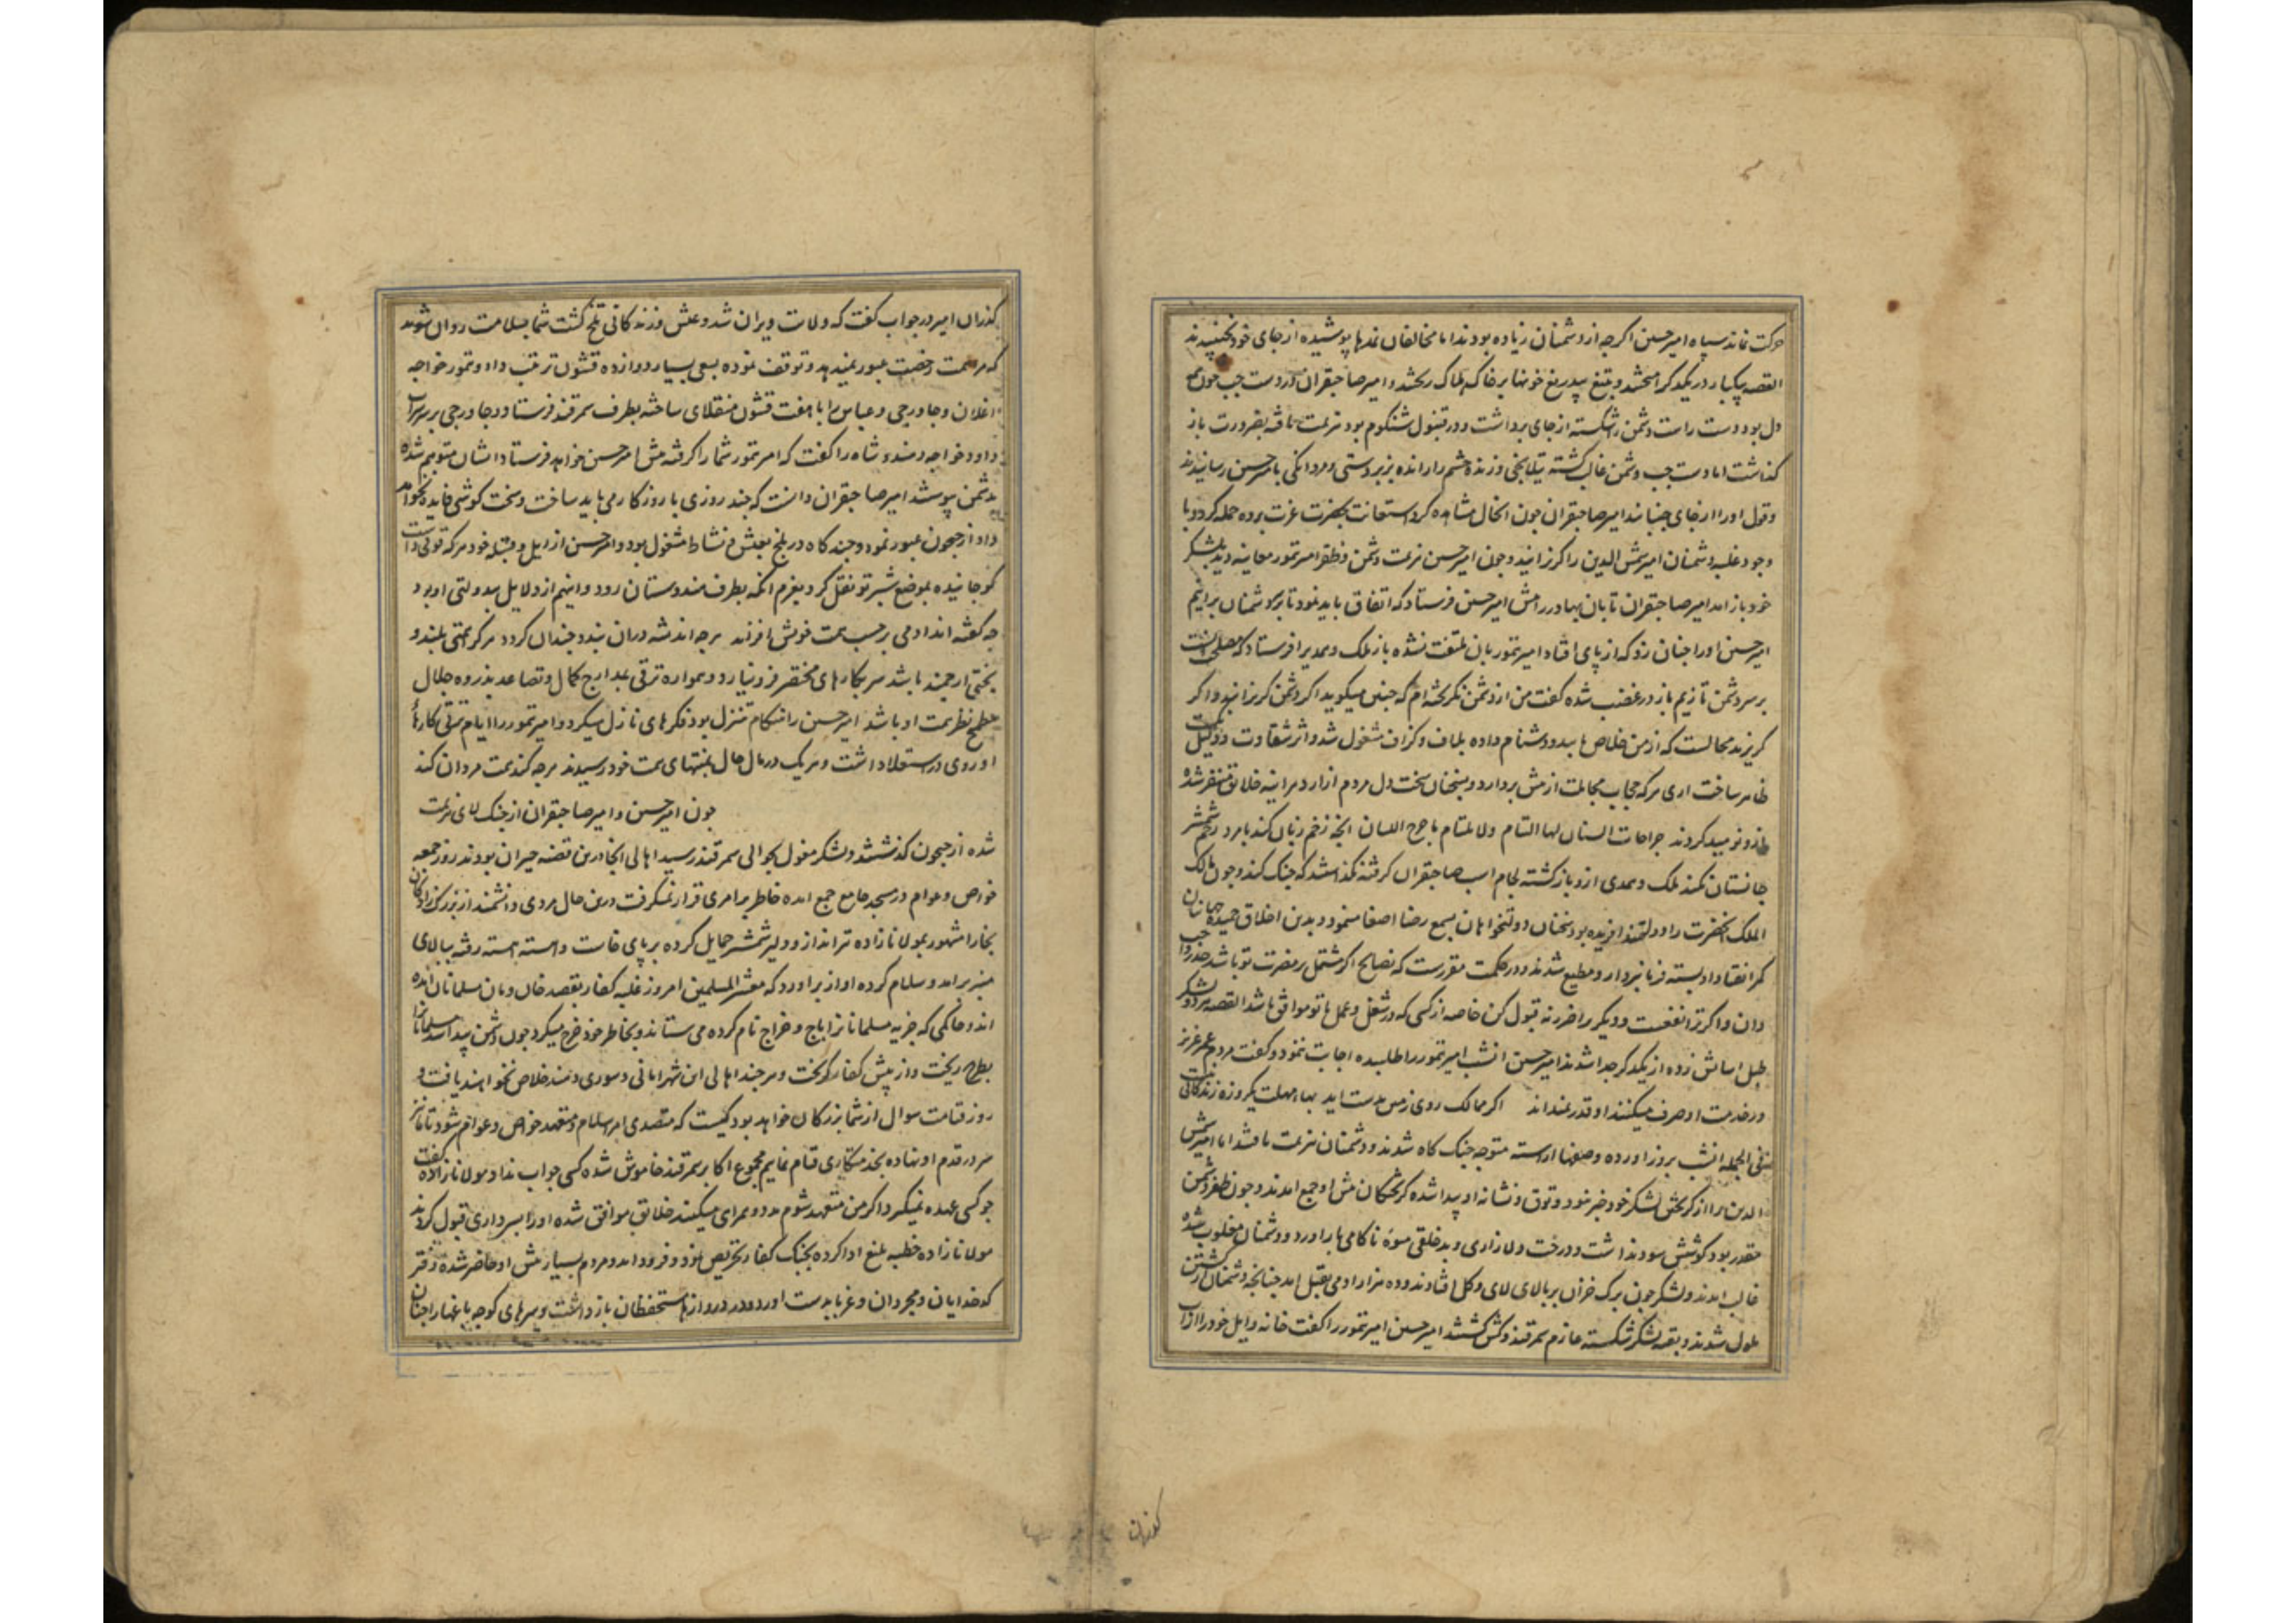 حرکت نماند سپاه امیر حسین اکرجه از دشمنان زیاده بودند اما مخالفان نمدها پوشیده از جای خود نجنبیدند
القصه بیکبار در یکدیکر امیختند و بتیغ بیدریغ خونها بر خاک هلاک ریختند و امیر صاحبقران در دست جب جون
دل بود دست راست دشمن را شکسته از جای برداشت و در قنبول شنکوم بود هزیمت یافته بضرورت باز
کذاشت اما دست جب دشمن غالب کشته تیلانجی و زنده حشم را رانده بزبردستی و مردانکی بامیر حسین رسانیدند
و قول او را از جای جنبانید امیر صاحبقران جون انحال مشاهده کرد استعانت بحضرت عزت برده حمله کرد و با
وجود غلبه دشمنان امیر شمس الدین را کریزانید و جون امیر حسین هزیمت دشمن و ظفر امیر تمور معاینه دید بلشکر
خود باز امد امیر صاحبقران تابان بهادر را پیش امیر حسین فرستاد که اتفاق باید نمود تا بر دشمنان برانیم
امیر حسین او را جنان زد که از پای افتاد امیر تمور بان ملتفت نشده باز ملک و همدی را فرستاد که مصلحت انست
بر سر دشمن تازیم باز در غضب شده کفت من از دشمن نکریخته ام که جنین میکوید اکر دشمن کریزانید و اکر
کریزند محالست که از من خلاص یابید و دشنام داده بلاف و کزاف مشغول شد و اثر شقاوت و نکبت
ظاهر ساخت اری هرکه حجاب مجاملت از پیش بردارد و بسخنان سخت دل مردم ازارد هر اینه خلایق متنفر شده
ازو نومید کردند جراحات السنان لها التیام ولا یلتام ما جرح اللسان انجه زخم زبان کند با مرد زخم شمشیر
جانستان نکند ملک و همدی ازو باز کشته لجام اسب صاحبقران کرفتند نکذاشتند که جنک کند و جون مالک
الملک انحضرت را دولتمند افریده بود سخنان دولتخواهان بسمع رضا اصغا مینمود و بدین اخلاق حمیده جهانیان
کمر انقیاد او بسته فرمانبردار و مطیع شدند و در حکمت مقررست که نصایح اکر مشتمل بر مضرت تو باشد
دان و اکر ترا نفعست و دیکری را ضرر نه قبول کن خاصه از کسی که در شغل و عمل با تو موافق باشد القصه هر دو لشکر
طبل اسایش زده از یکدیکر جدا شدند امیر حسین انشب امیر تمور را طلبیده اجابت ننمود و کفت مردم عمر عزیز
در خدمت او صرف میکنند او قدر نمیداند اکر ممالک روی زمین بدست اید بهای مهلت یکروزه زندکانی نیست
فی الجمله انشب بروز اورده و صفها اراسته متوجه جنک کاه شدند و دشمنان هزیمت یافتند اما امیر شمس
الدین را از کریختن لشکر خود خبر نبود و توق و نشانه او پیدا شده کریختکان پیش او جمع امدند و جون ظفر دشمن
مقدر بود کوشش سود نداشت و درخت دلازاری و بدخلقی میوه ناکامی بار اورد و دشمنان مغلوب شده
غالب امدند و لشکر جون برک خزان بر بالای لای و کل افتادند و ده هزار ادمی بقتل امد جنانجه دشمنان از کشتن
ملول شدند و بقیه لشکر شکسته عازم سمرقند و کش کشتند امیر حسین امیر تمور را کفت خانه و ایل خود را از اب
کونهات
بکذران امیر در جواب کفت که ولایت ویران شد و عیش و زندکانی تلخ کشت شما بسلامت روان شوید
که مرا همت رخصت عبور نمیدهد و توقف نموده بسعی بسیار دوازده قشون ترتیب داد و تمور خواجه
اغلان و جاورجی و عباس را با هفت قشون منقلای ساخته بطرف سمرقند فرستاد و جاورجی بر سر شراب
داود خواجه و هندو شاه را کفت که امیر تمور شما را کرفته پیش امیر حسین خواهد فرستاد ایشان متوهم شده
بدشمن پیوستند امیر صاحبقران دانست که جند روزی با روزکار می باید ساخت و سخت کوشی فایده نخواهد
داد از جیحون عبور نمود و جند کاه در بلخ بعیش و نشاط مشغول بود و امیر حسین از ایل و قبیله خود هرکه توانست
کوجانیده بموضع شبرتو نقل کرد بعزم انکه بطرف هندوستان رود و اینهم از دلایل بیدولتی او بود
جه کفته اند ادمی بر حسب همت خویش افزند هرجه اندیشه دران بندد جندان کردد هرکرا همتی بلند و
بختی ارجمند باشد سر بکارهای مختصر فرو نیارد و همواره ترقی بمدارج کمال و تصاعد بذروه جلال
مطمح نظر همت او باشد امیر حسین را هنکام تنزل بود فکرهای نازل میکرد و امیر تمور را ایام ترقی کارهاء
او روی در استعلا داشت و هر یک در مال حال بمنتهای همت خود رسیدند هرجه کند همت مردان کند
جون امیر حسین و امیر صاحبقران از جنک لای هزیمت
شده از جیحون کذشتند و لشکر مغول بحوالی سمرقند رسید اهالی انجا درین قضیه حیران بودند روز جمعه
خواص و عوام در مسجد جامع جمع امده خاطر بر امری قرار نمیکرفت درین حال مردی دانشمند از بزرک زادکان
بخارا مشهور بمولانا زاده تیرانداز و دلیر شمشیر حمایل کرده بر پای خاست و اهسته اهسته رفته ببالای
منبر برامد و سلام کرده اواز براورد که معشر المسلمین امروز غلبه کفار بقصد خان و مان مسلمانان امده
اند و حاکمی که جزیه مسلمانان را باج و خراج نام کرده می ستاند و بخاطر خود خرج میکرد جون دشمن پیدا شد مسلمانان را
بطرح ریخت و از پیش کفار کریخت و هر جند اهالی این شهر امانی و سوری دهند خلاص نخواهند یافت و
روز قیامت سوال از شما بزرکان خواهد بود کیست که متصدی امر اسلام و متعهد خواص و عوام شود تا ما نیز
سر در قدم او نهاده بخدمتکاری قیام نماییم مجموع اکابر سمرقند خاموش شده کسی جواب نداد مولانا زاده کفت
جو کسی عهده نمیکیرد اکر من متعهد شوم مدد و همراهی میکنند خلایق موافق شده او را بسرداری قبول کردند
مولانا زاده خطبه بلیغ ادا کرده بجنک کفار تحریص نمود و فرود امد و مردم بسیار پیش او حاضر شده دفتر
کدخدایان و مجردان و غربا بدست اورد و در دروازها مستحفظان باز داشت و سرهای کوجه باغها را جنان